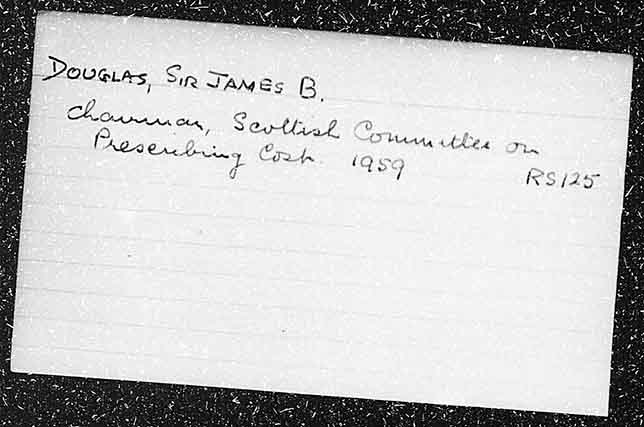 DOUGLAS, SIR JAMES B.
chairman, Scottish Committee on
Prescribing Cost. 1959 RS125